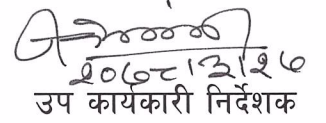 २०७८।३।२७
उप कार्यकारी निर्देशक